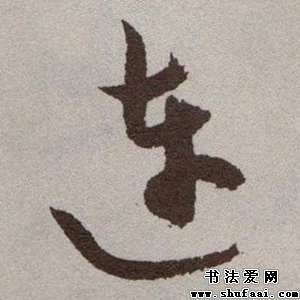 连
书法爱网
www.shufaai.com